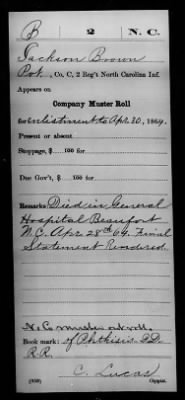 B 2 N.C.
Jackson Brown
Pvt., Co. C, 2 Reg't North Carolina Inf.
Appears on
Company Muster Roll
for enlistment to Apr. 30, 1864.
Present or absent
Stoppage, $ 100 for
Due Gov't, $ 100 for
Remarks: Died in General
Hospital Beaufort
N.C. Apr 28th 64. Final
Statement Rendered
Book mark: of Phthisis
R.R.
C. Lucas
(358) Copyist.